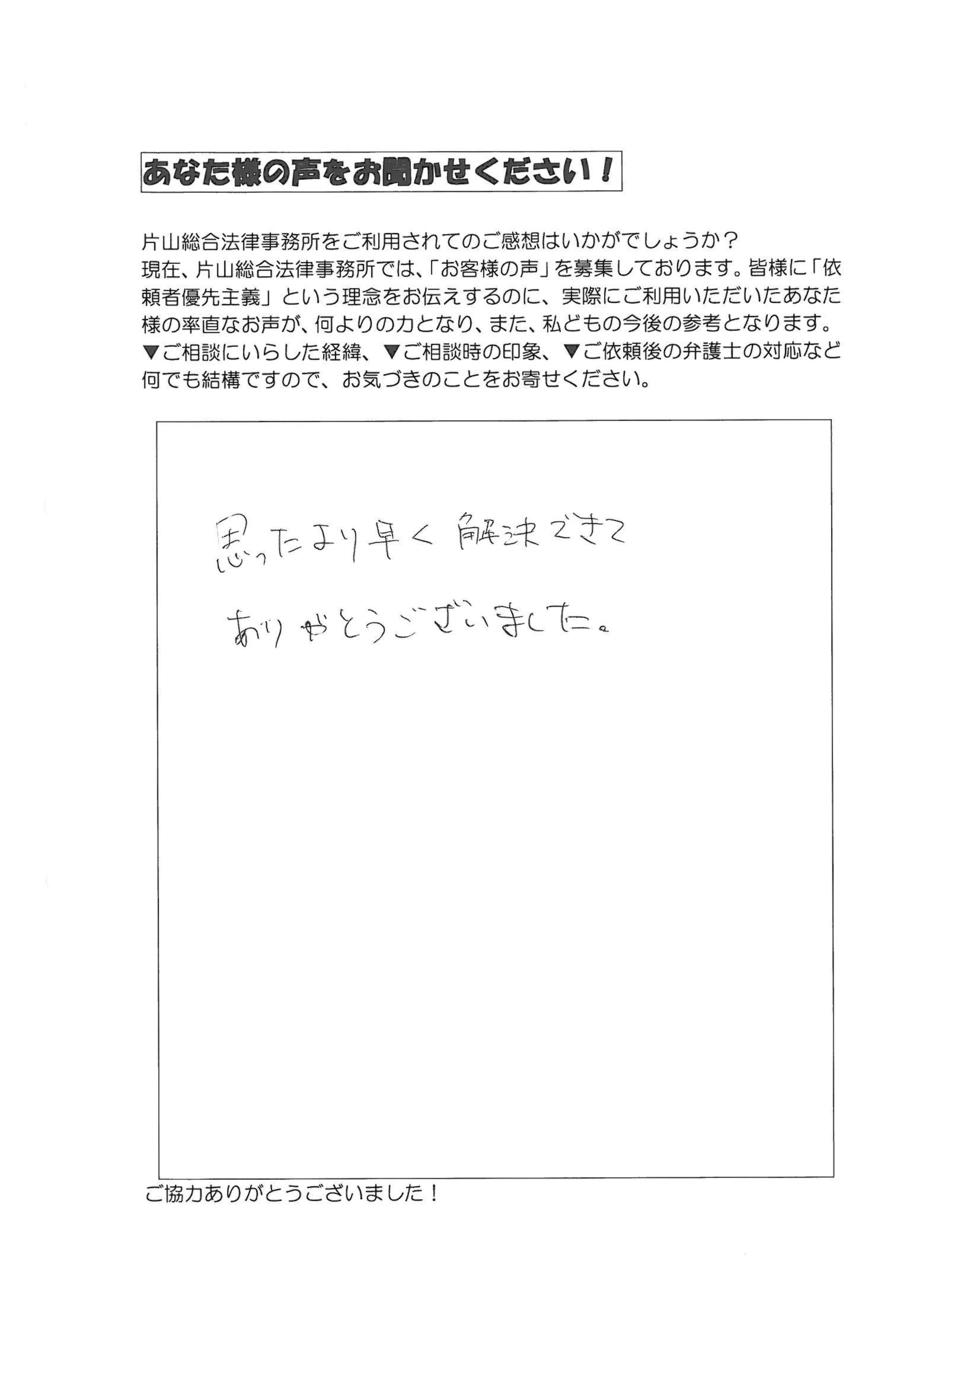 あなた様の声をお聞かせください！
片山総合法律事務所をご利用されてのご感想はいかがでしょうか？
現在、片山総合法律事務所では、「お客様の声」を募集しております。皆様に「依
頼者優先主義」という理念をお伝えするのに、実際にご利用いただいたあなた
様の率直なお声が、何よりの力となり、また、私どもの今後の参考となります。
▼ご相談にいらした経緯、▼ご相談時の印象、▼ご依頼後の弁護士の対応など
何でも結構ですので、お気づきのことをお寄せください。
思ったより早く解決できて
ありがとうございました。
ご協力ありがとうございました！